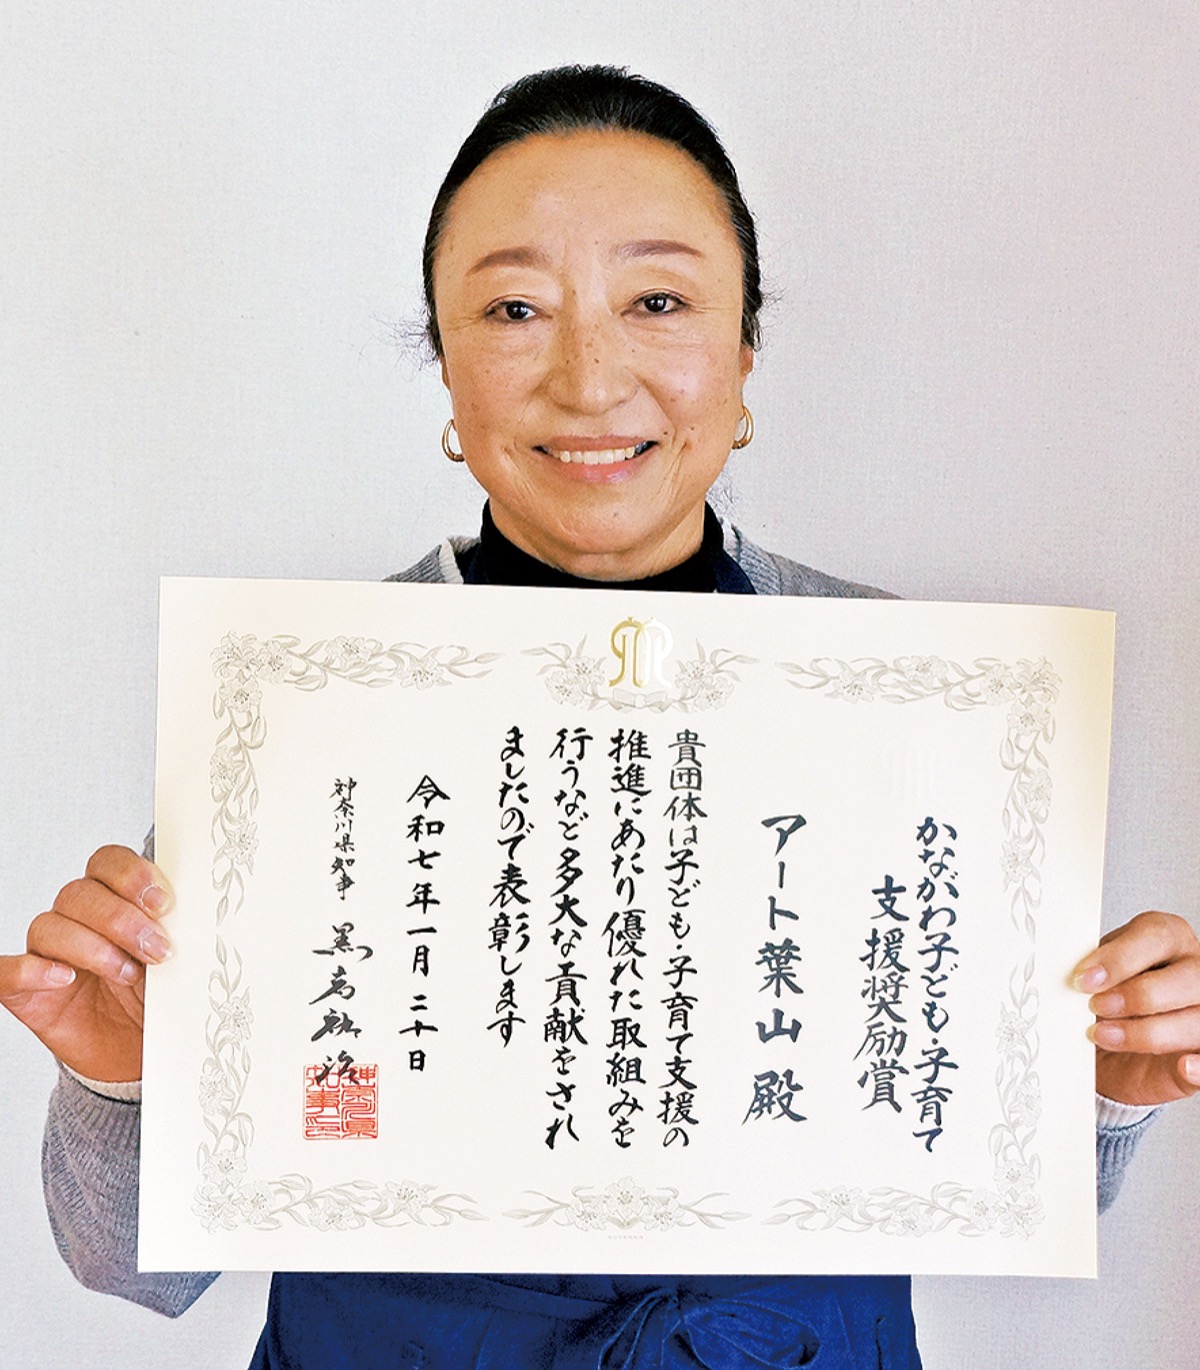 かながわ子ども・子育て
支援奨励賞
アート葉山殿
貴団体は子ども・子育て支援の
推進にあたり優れた取組みを
行うなど多大な貢献をされ
ましたので表彰します
令和七年一月二十日
神奈川県知事 黒岩祐治